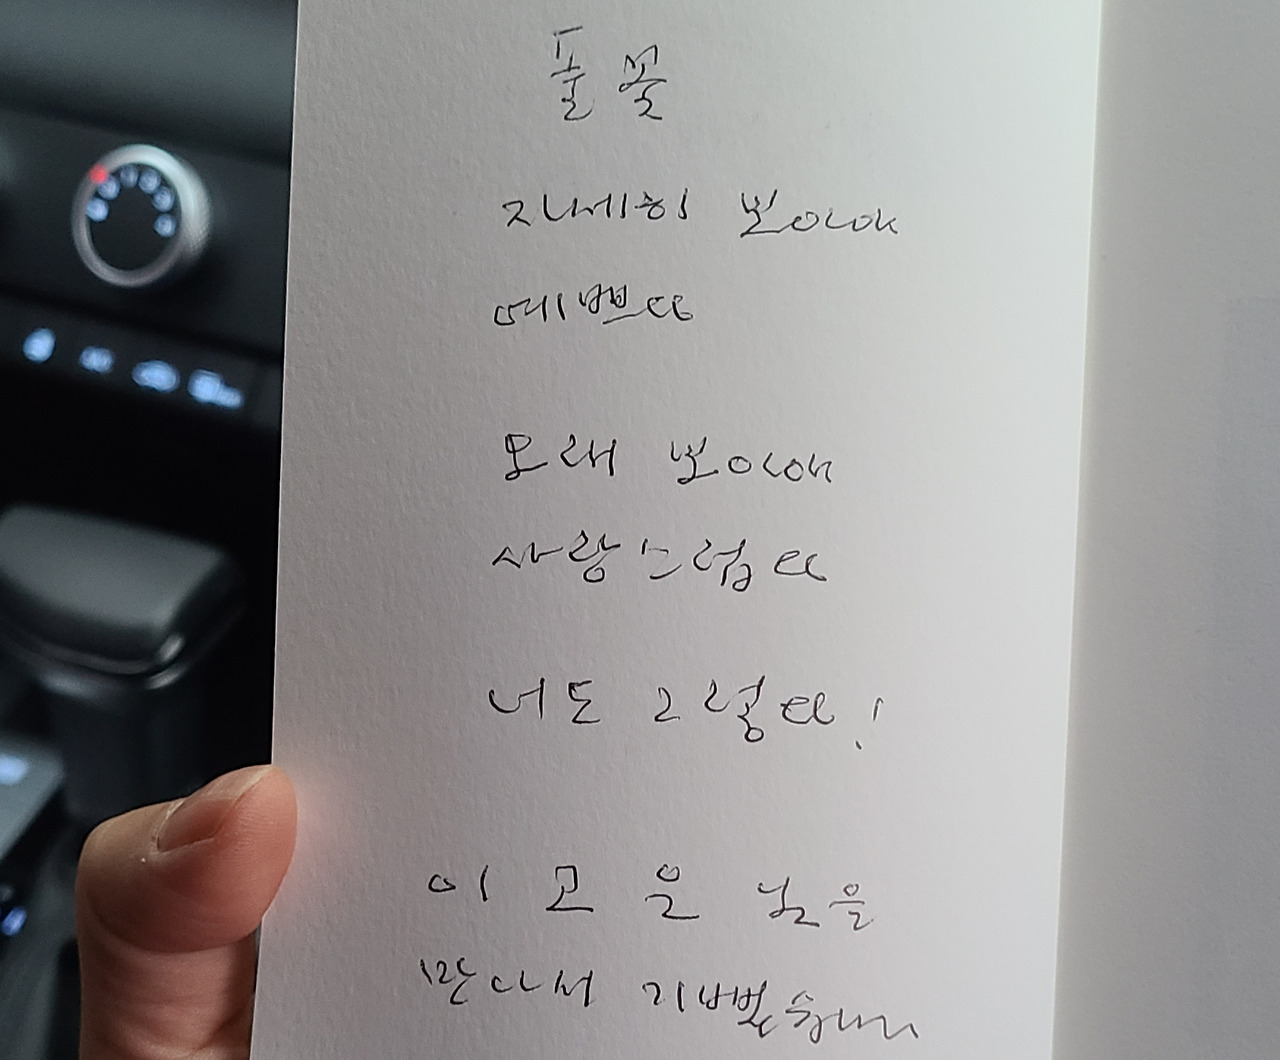 풀꽃
자세히 보아야
예쁘다
오래 보아야
사랑스럽다
너도 그렇다!
이 고운
만나서 기뻤습니다